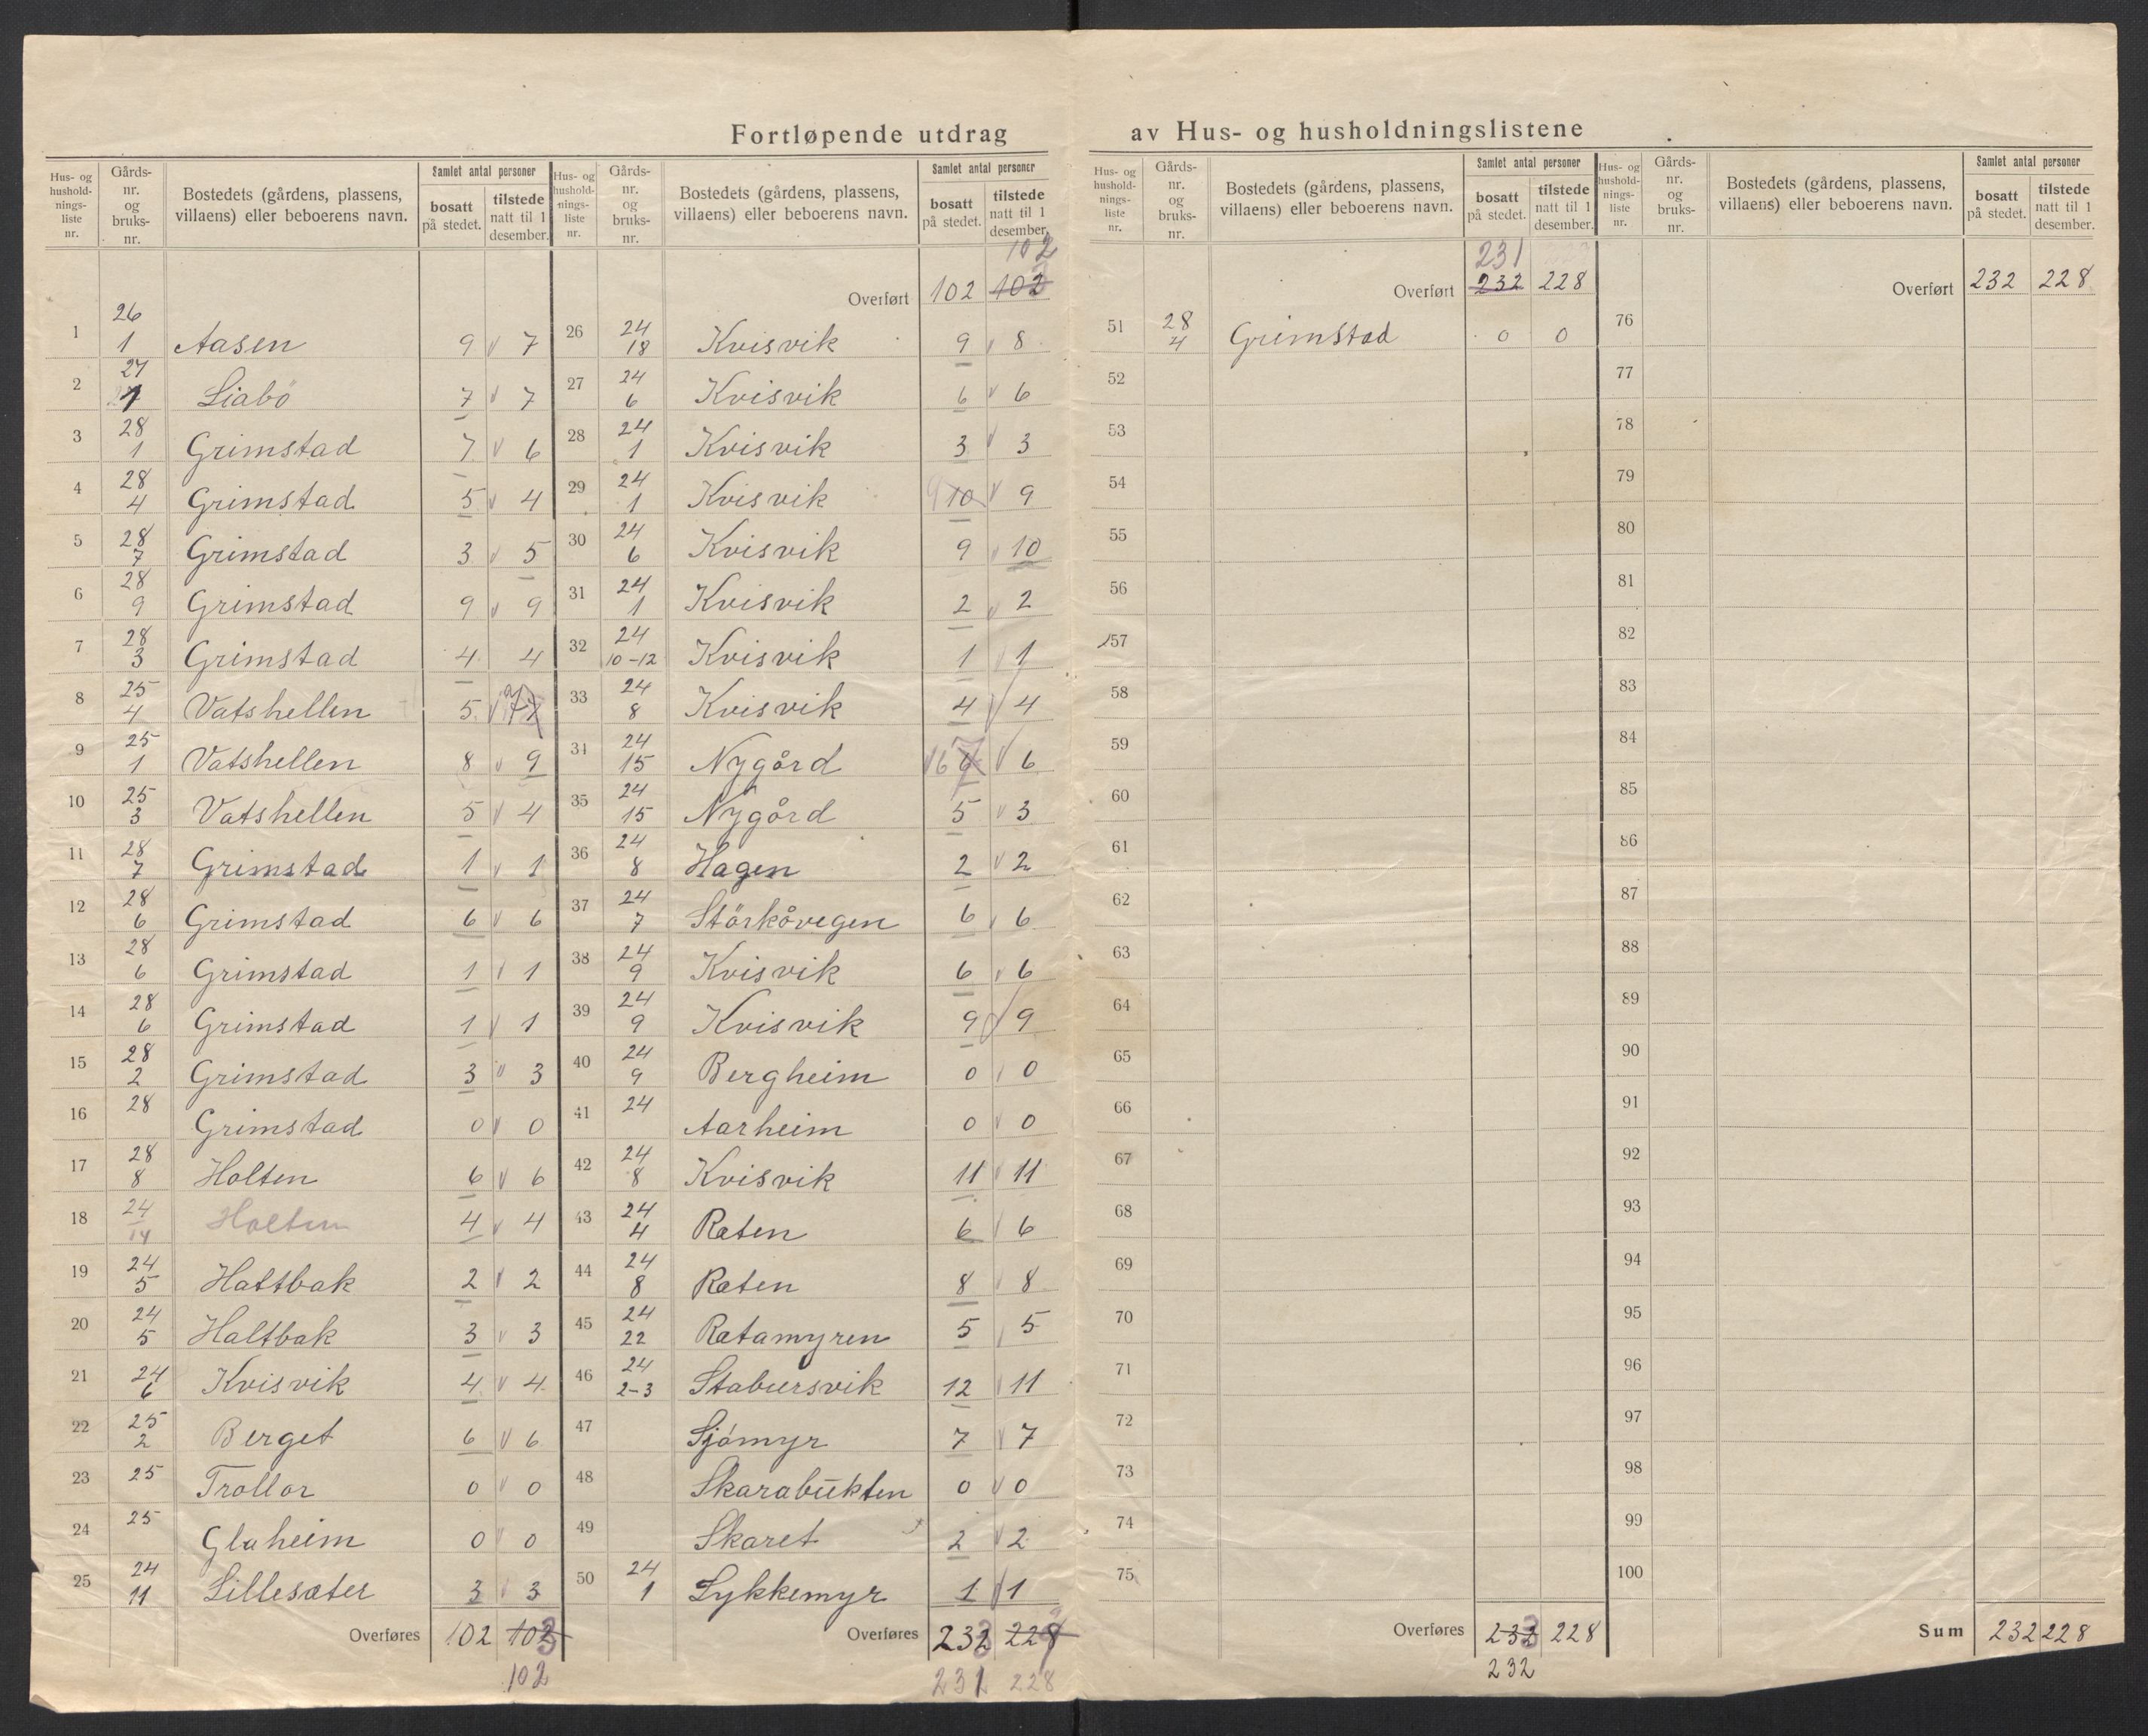 Fortløpende utdrag av Hus- og husholdningslistene
Hus- og hushold-nings-liste nr. Gårds-nr. og bruks-nr. Bostedets (gårdens, plassens, villaens) eller beboerens navn. Samlet antal personer bosatt på stedet. tilstede natt til 1 desember.
1 26 1 Aasen 9 7
2 27 1 Liabö 7 7
3 28 1 Grimstad 7 6
4 28 4 Grimstad 5 4
5 28 7 Grimstad 3 5
6 28 9 Grimstad 9 9
7 28 3 Grimstad 4 4
8 25 4 Vatshellen 5
9 25 1 Vatshellen 8 9
10 25 3 Vatshellen 5 4
11 28 7 Grimstad 1 1
12 28 6 Grimstad 6 6
13 28 6 Grimstad 1 1
14 28 6 Grimstad 1 1
15 28 2 Grimstad 3 3
16 28 Grimstad 0 0
17 28 8 Holten 6 6
18 24 14 Holten 4 4
19 24 5 Hattbak 2 2
20 24 5 Haltbak 3 3
21 24 6 Kvisvik 4 4
22 25 2 Berget 6 6
23 25 Trollor 0 0
24 25 Glaheim 0 0
25 24 11 Lillesæter 3 3
Overføres 102 103
102
Hus- og hushold-nings-liste nr. Gårds-nr. og bruks-nr. Bostedets (gårdens, plassens, villaens) eller beboerens navn. Samlet antal personer bosatt på stedet. tilstede natt til 1 desember.
102
Overført 102 102
26 24 18 Kvisvik 9 8
27 24 6 Kvisvik 6 6
28 24 1 Kvisvik 3 3
29 24 1 Kvisvik 9 10 9
30 24 6 Kvisvik 9 10
31 24 1 Kvisvik 2 2
32 24 10-12 Kvisvik 1 1
33 24 8 Kvisvik 4 4
34 24 15 Nygård 6 6
35 24 15 Nygård 5 3
36 24 8 Hagen 2 2
37 24 7 Störkåvegen 6 6
38 24 9 Kvisvik 6 6
39 24 9 Kvisvik 9 9
40 24 9 Bergheim 0 0
41 24 Aarheim 0 0
42 24 8 Kvisvik 11 11
43 24 4 Røten 6 6
44 24 8 Røten 8 8
45 24 22 Røtamyren 5 5
46 24 2-3 Stabursvik 12 11
47 Sjömyr 7 7
48 Skarabukten 0 0
49 Skaret 2 2
50 24 1 Lykkemyr 1 1
Overføres 232 228
231 228
Hus- og hushold-nings-liste nr. Gårds-nr. og bruks-nr. Bostedets (gårdens, plassens, villaens) eller beboerens navn. Samlet antal personer bosatt på stedet. tilstede natt til 1 desember.
231
Overført 232 228
51 28 4 Grimstad 0 0
52
53
54
55
56
57
58
59
60
61
62
63
64
65
66
67
68
69
70
71
72
73
74
75
Overføres 232 228
232
Hus- og hushold-nings-liste nr. Gårds-nr. og bruks-nr. Bostedets (gårdens, plassens, villaens) eller beboerens navn. Samlet antal personer bosatt på stedet. tilstede natt til 1 desember.
Overført 232 228
76
77
78
79
80
81
82
83
84
85
86
87
88
89
90
91
92
93
94
95
96
97
98
99
100
Sum 232 228